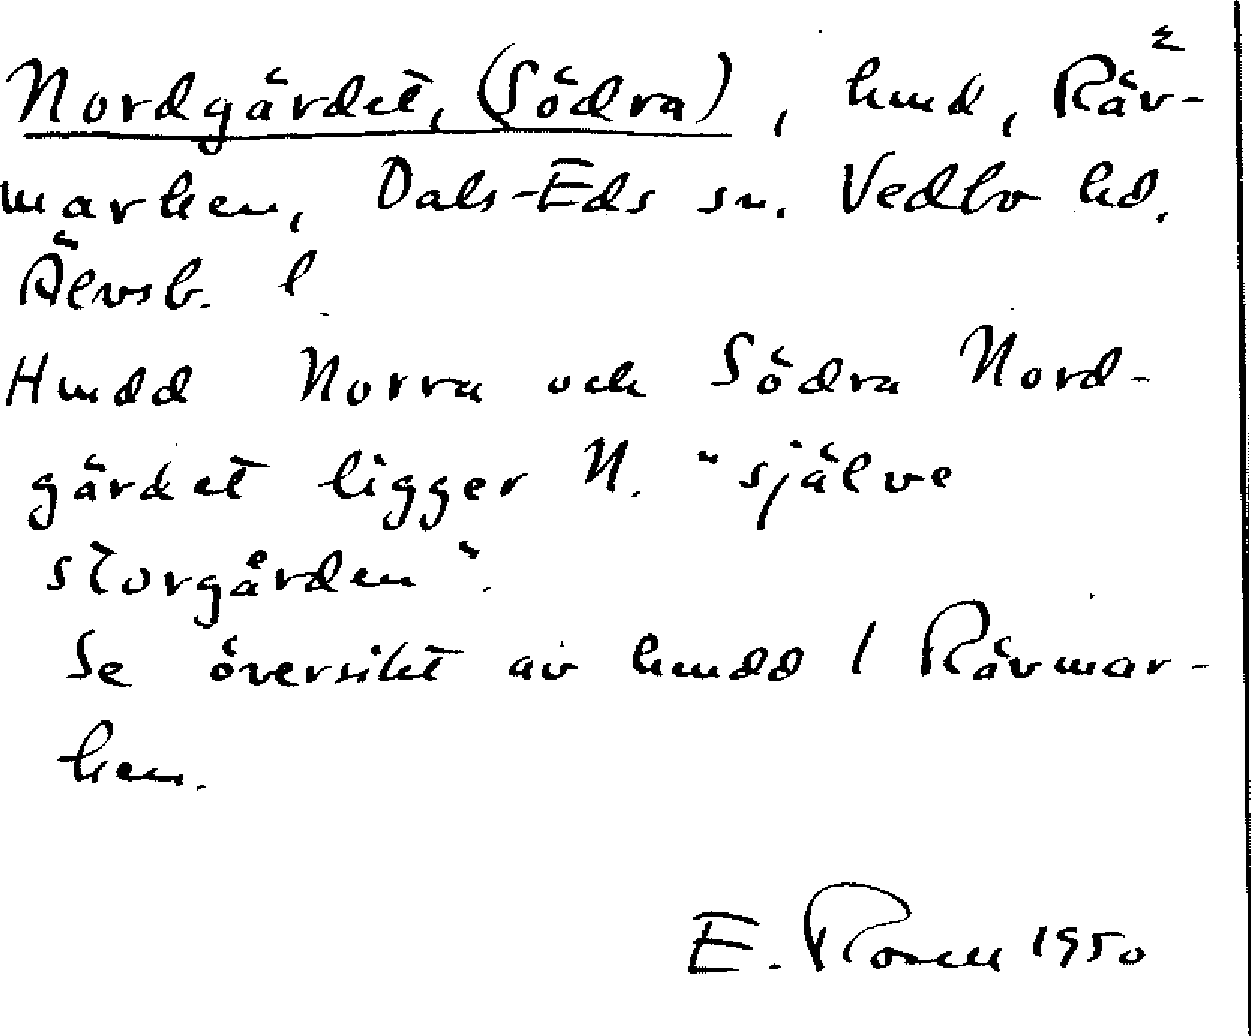 Nordgärdet, (Södra), hmd, Räv-²
marken, Dals-Eds sn. Vedbo hd.
Älvsb. l.
Hmdd Norra och Södra Nord-
gärdet ligger N. "själve
storgården".
Se översikt av hmdd / Rävmar-
ken.
E. Rosell 1950